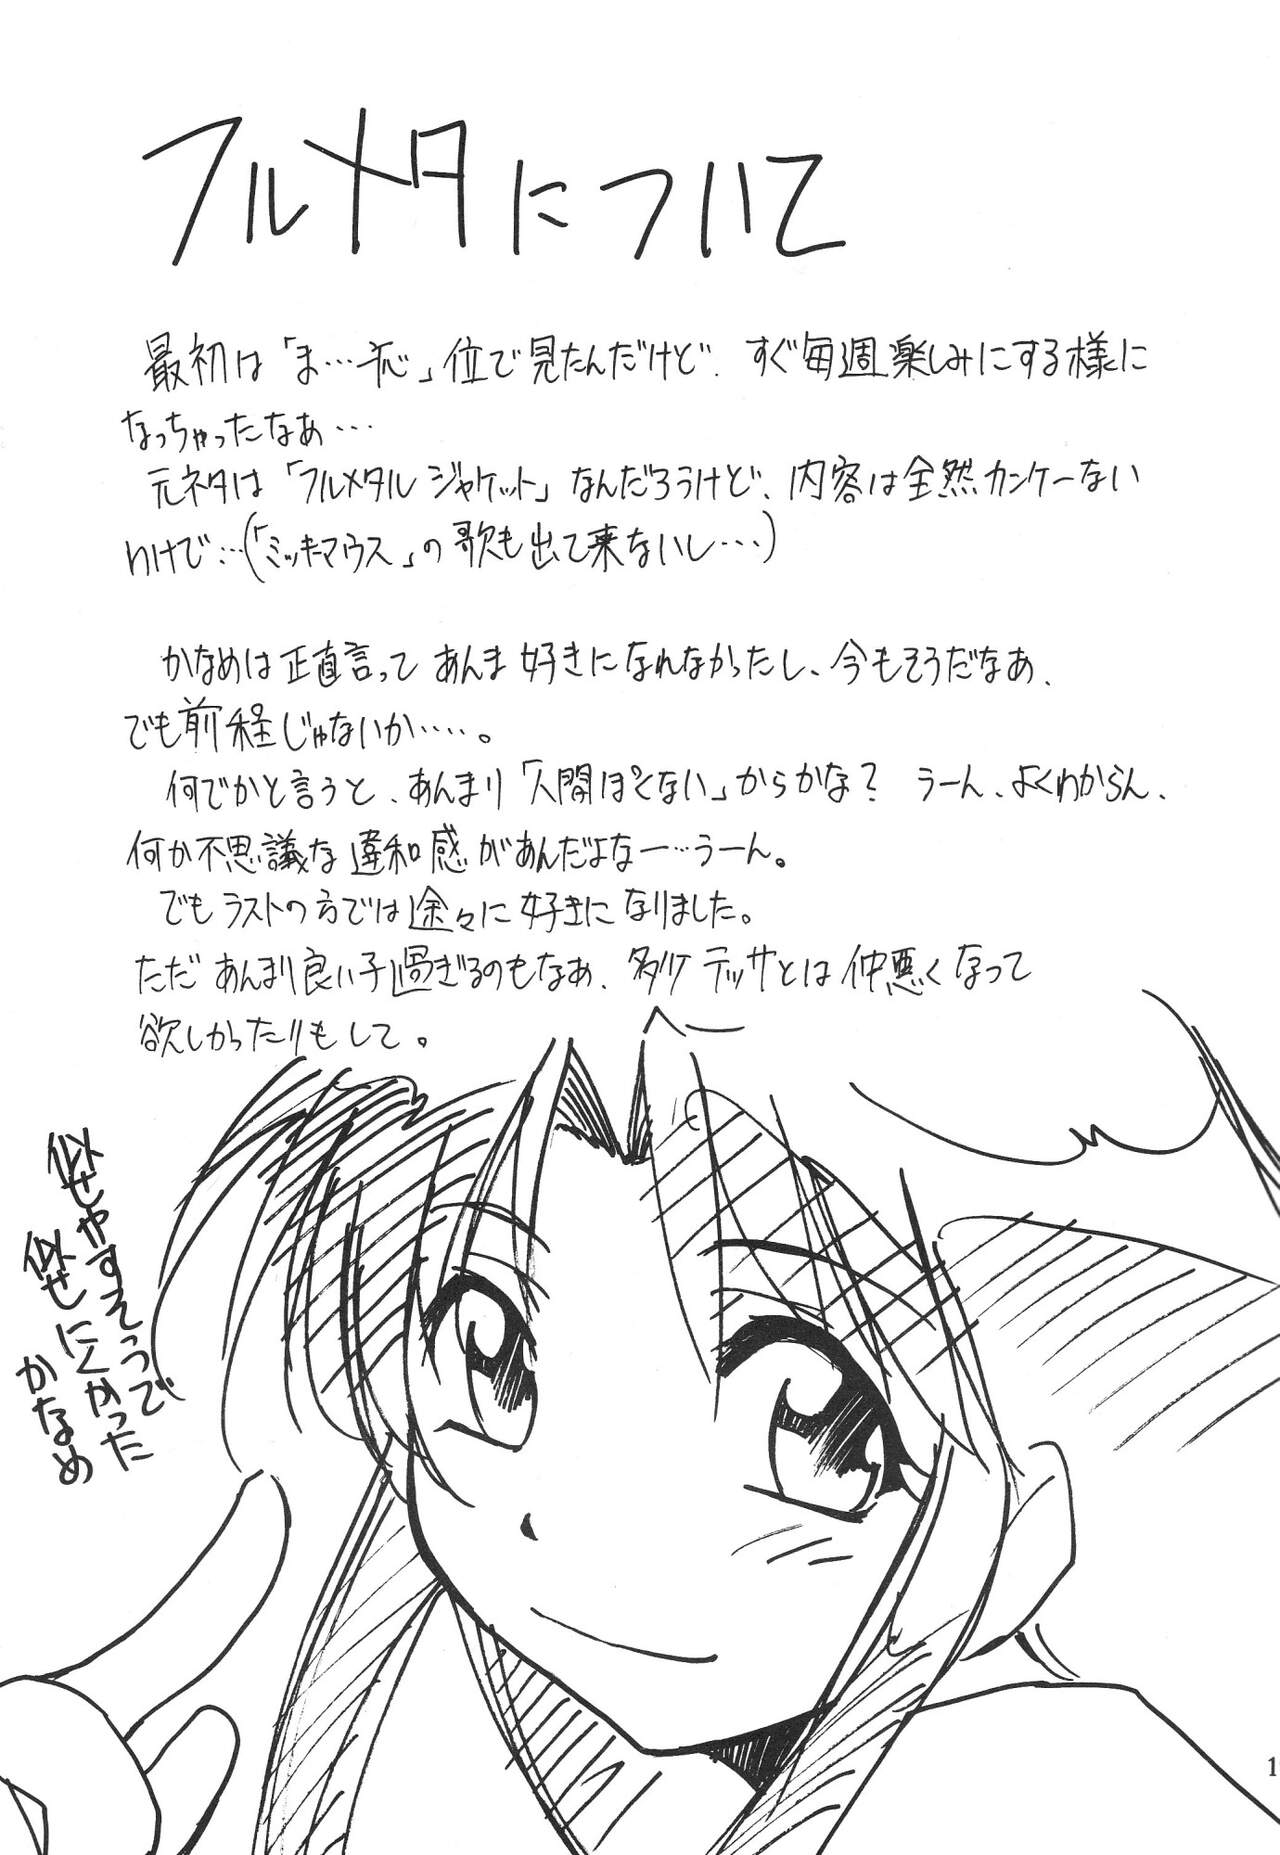 フルメタについて
最初は「ま…一応」位で見たんだけど、すぐ毎週楽しみにする様に
なっちゃったなぁ…
元ネタは「フルメタルジャケット」なんだろうけど、内容は全然カンケーない
わけで…(「ミッキーマウス」の歌も出て来ないし…)
かなめは正直言って あんま好きになれなかったし、今もそうだなぁ、
でも前程じゃないか……。
何でかと言うと、あんまり「人間ぽくない」からかな? うーん、よくわからん、
何か不思議な違和感があんだよなー…うーん。
でもラストの方では途々に好きになりました。
ただあんまり良い子過ぎるのもなぁ、多少テッサとは仲悪くなって
欲しかったりもして。
似せやすそうで
似せにくかった
かなめ